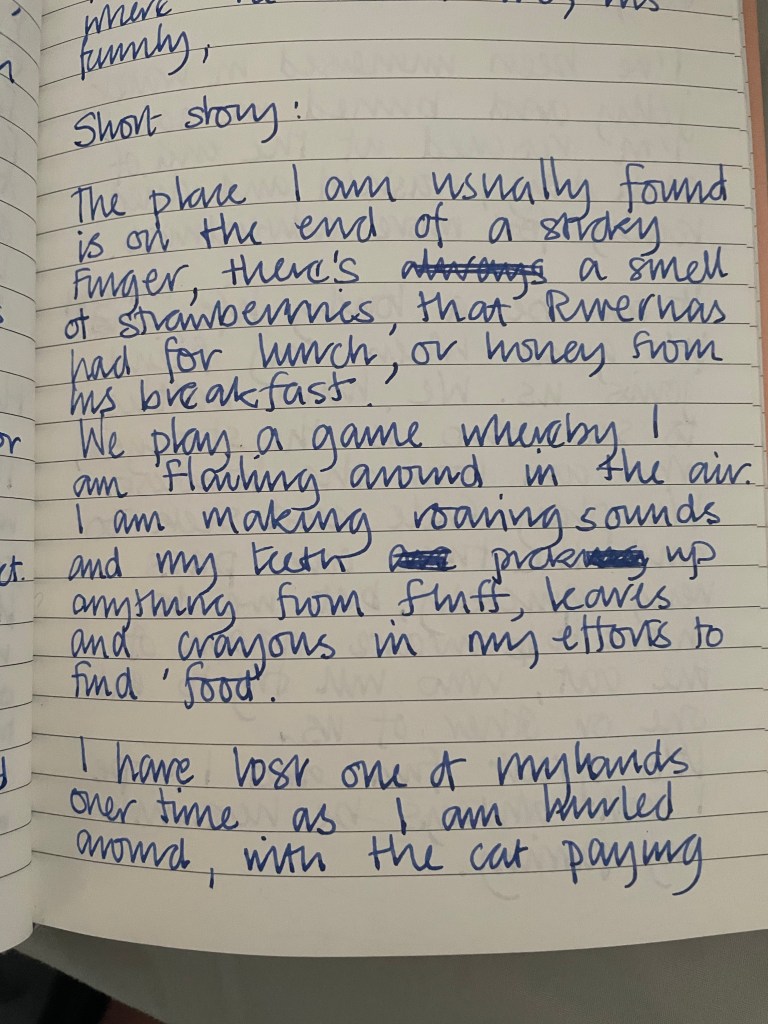 where
family,
Short story:
The place I am usually found
is on the end of a sticky
finger, there's always a smell
of strawberries, that River has
had for lunch, or honey from
his breakfast.
We play a game whereby I
am flailing around in the air.
I am making roaring sounds
and my teeth pick up
anything from fluff, leaves
and crayons in my efforts to
find 'food'.
I have lost one of my hands
over time as I am hurled
around, with the cat paying